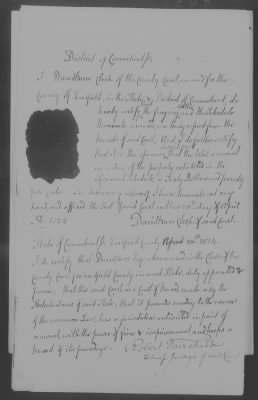 District of Connecticut ss.
I David Burr Clerk of the County Court, in and for the
County of Fairfield, in the State & District of Connecticut, do
hereby certify the foregoing and the Schedule
thereunto annexed, is truly copied from the
records of said Court; And I do further certify
that it is the opinion that the total amount
in value, of the property exhibited in the
aforesaid Schedule, is sixty Dollars and seventy
five cents. In testimony whereof, I have hereunto set my
hand and affixed the Seal of said Court on this 20th day of April
David Burr Clerk of said Court.
State of Connecticut ss. Fairfield County April 20th 1824.
I do certify, that David Burr Esq. above named is the Clerk of the
County Court for Fairfield County in said State, duly appointed &
sworn; that the said Court, is a Court of Record, made so by the
Statute Laws of said State, that it proceeds according to the course
of the common Law, has a jurisdiction unlimited in point of
amount, with the power of fine & imprisonment and keeps a
Record of its proceedings
Chief Judge of said Court